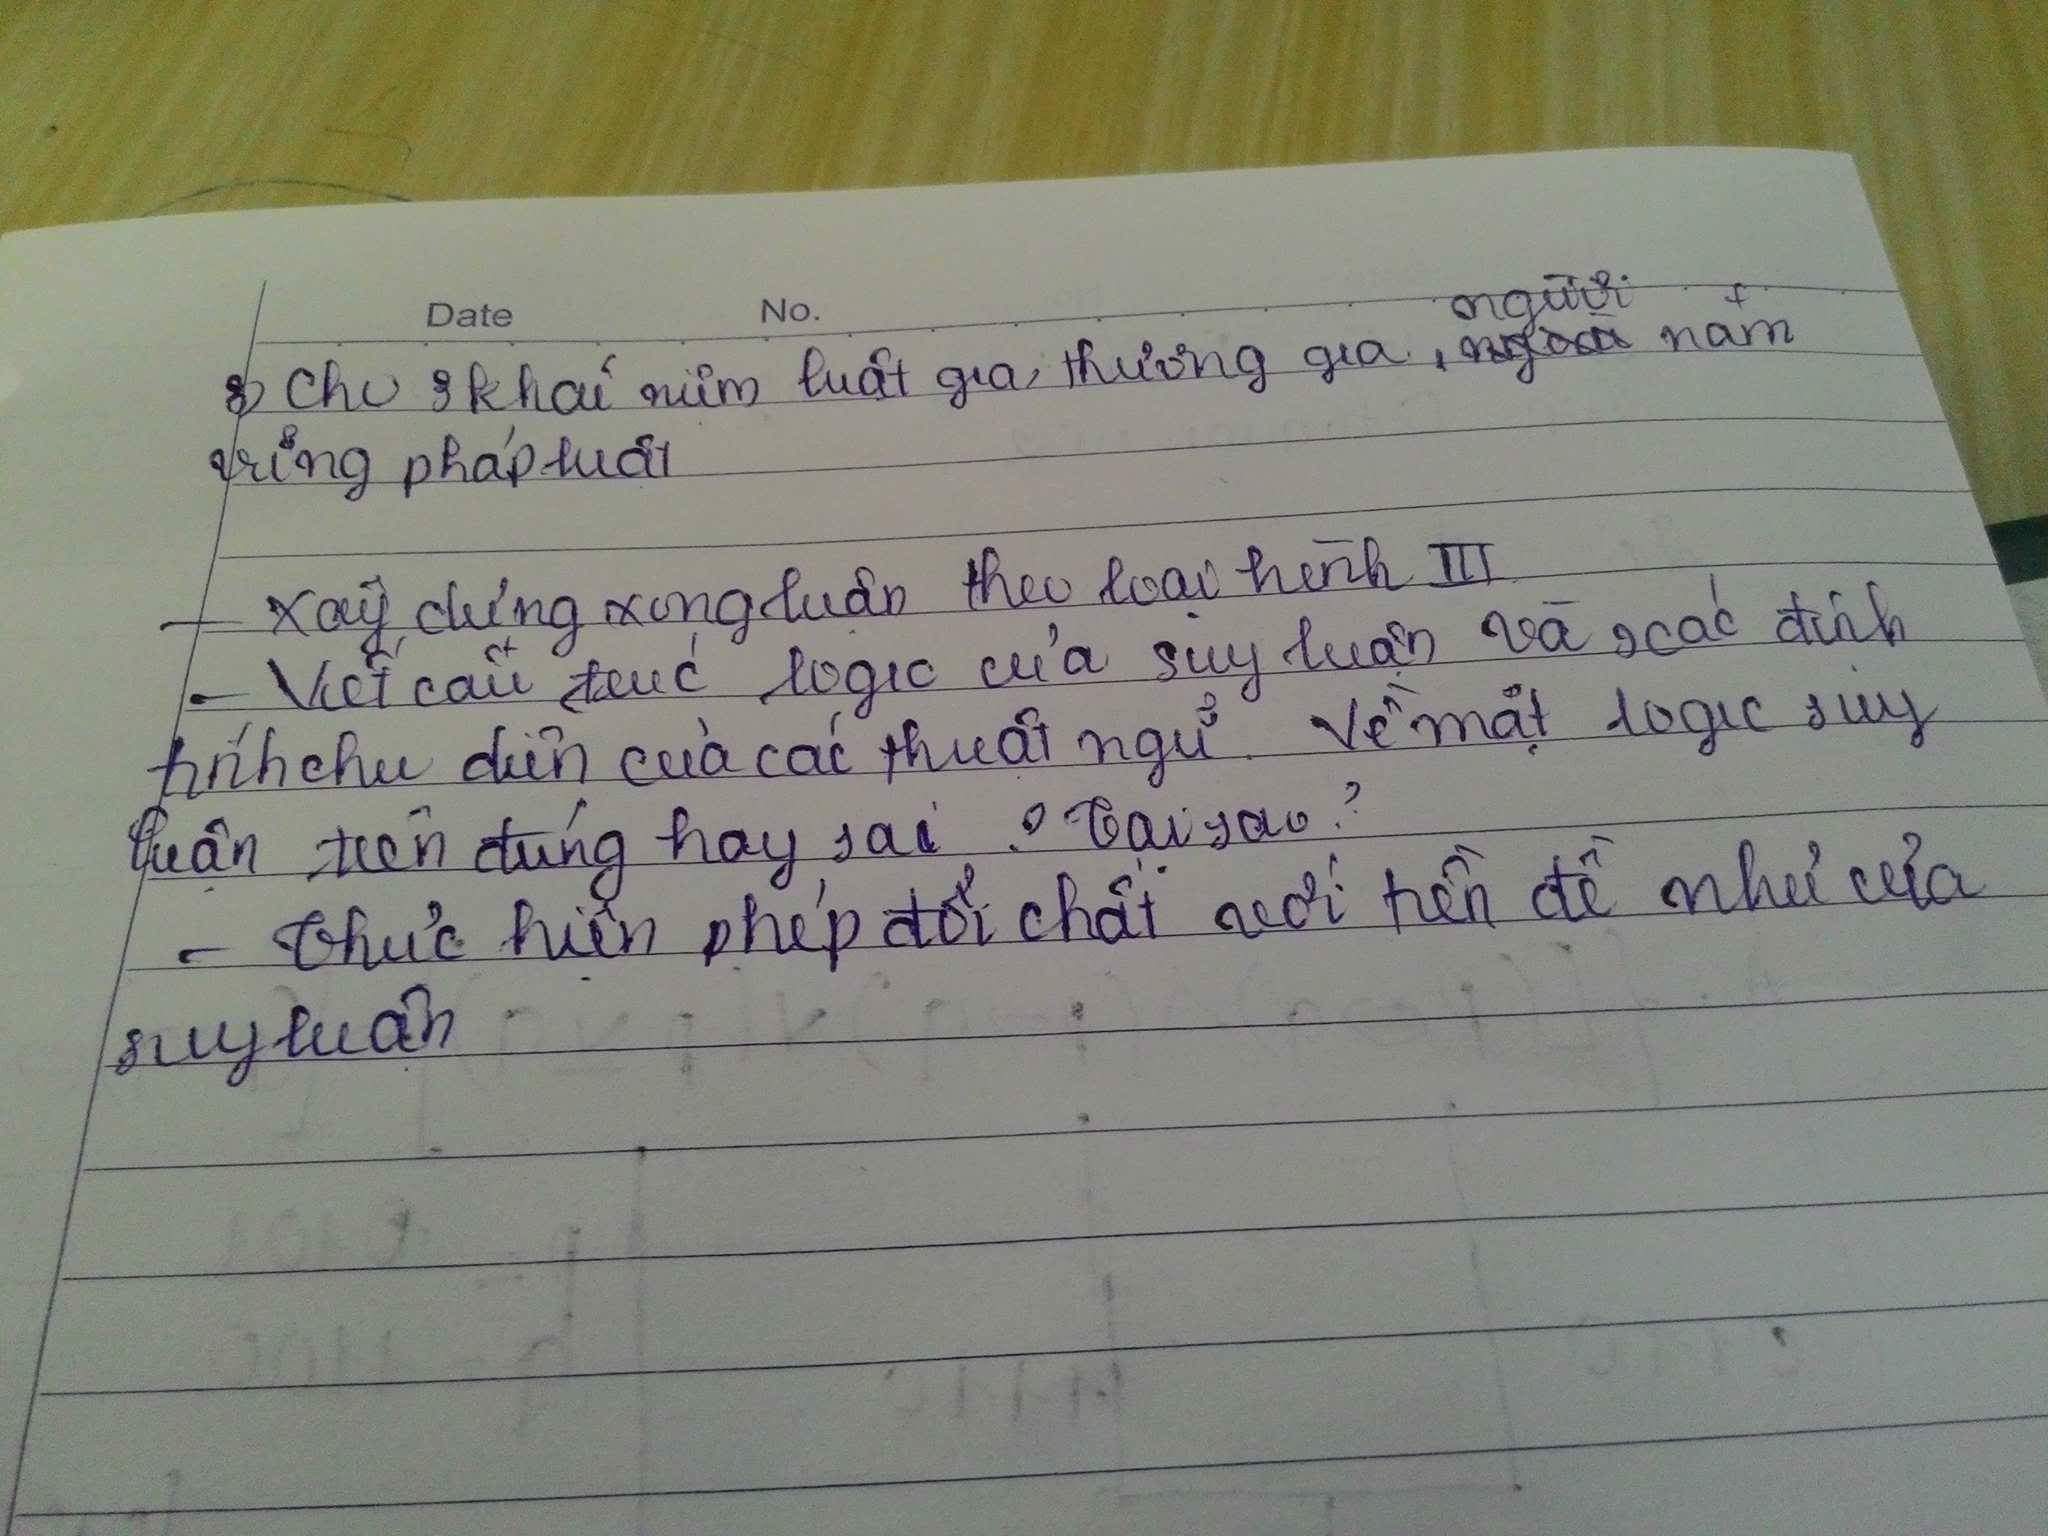 Date No.
người
8) Cho 3 khái niệm luật gia, thương gia, nắm
vững pháp luật
- Xây dựng xong luận theo loại hình III
- Viết cấu trúc logic của suy luận và xác định
tính chu diên của các thuật ngữ. Về mặt logic suy
luận trên đúng hay sai ? Tại sao?
- Thực hiện phép đổi chất với tiền đề nhỏ của
suy luận